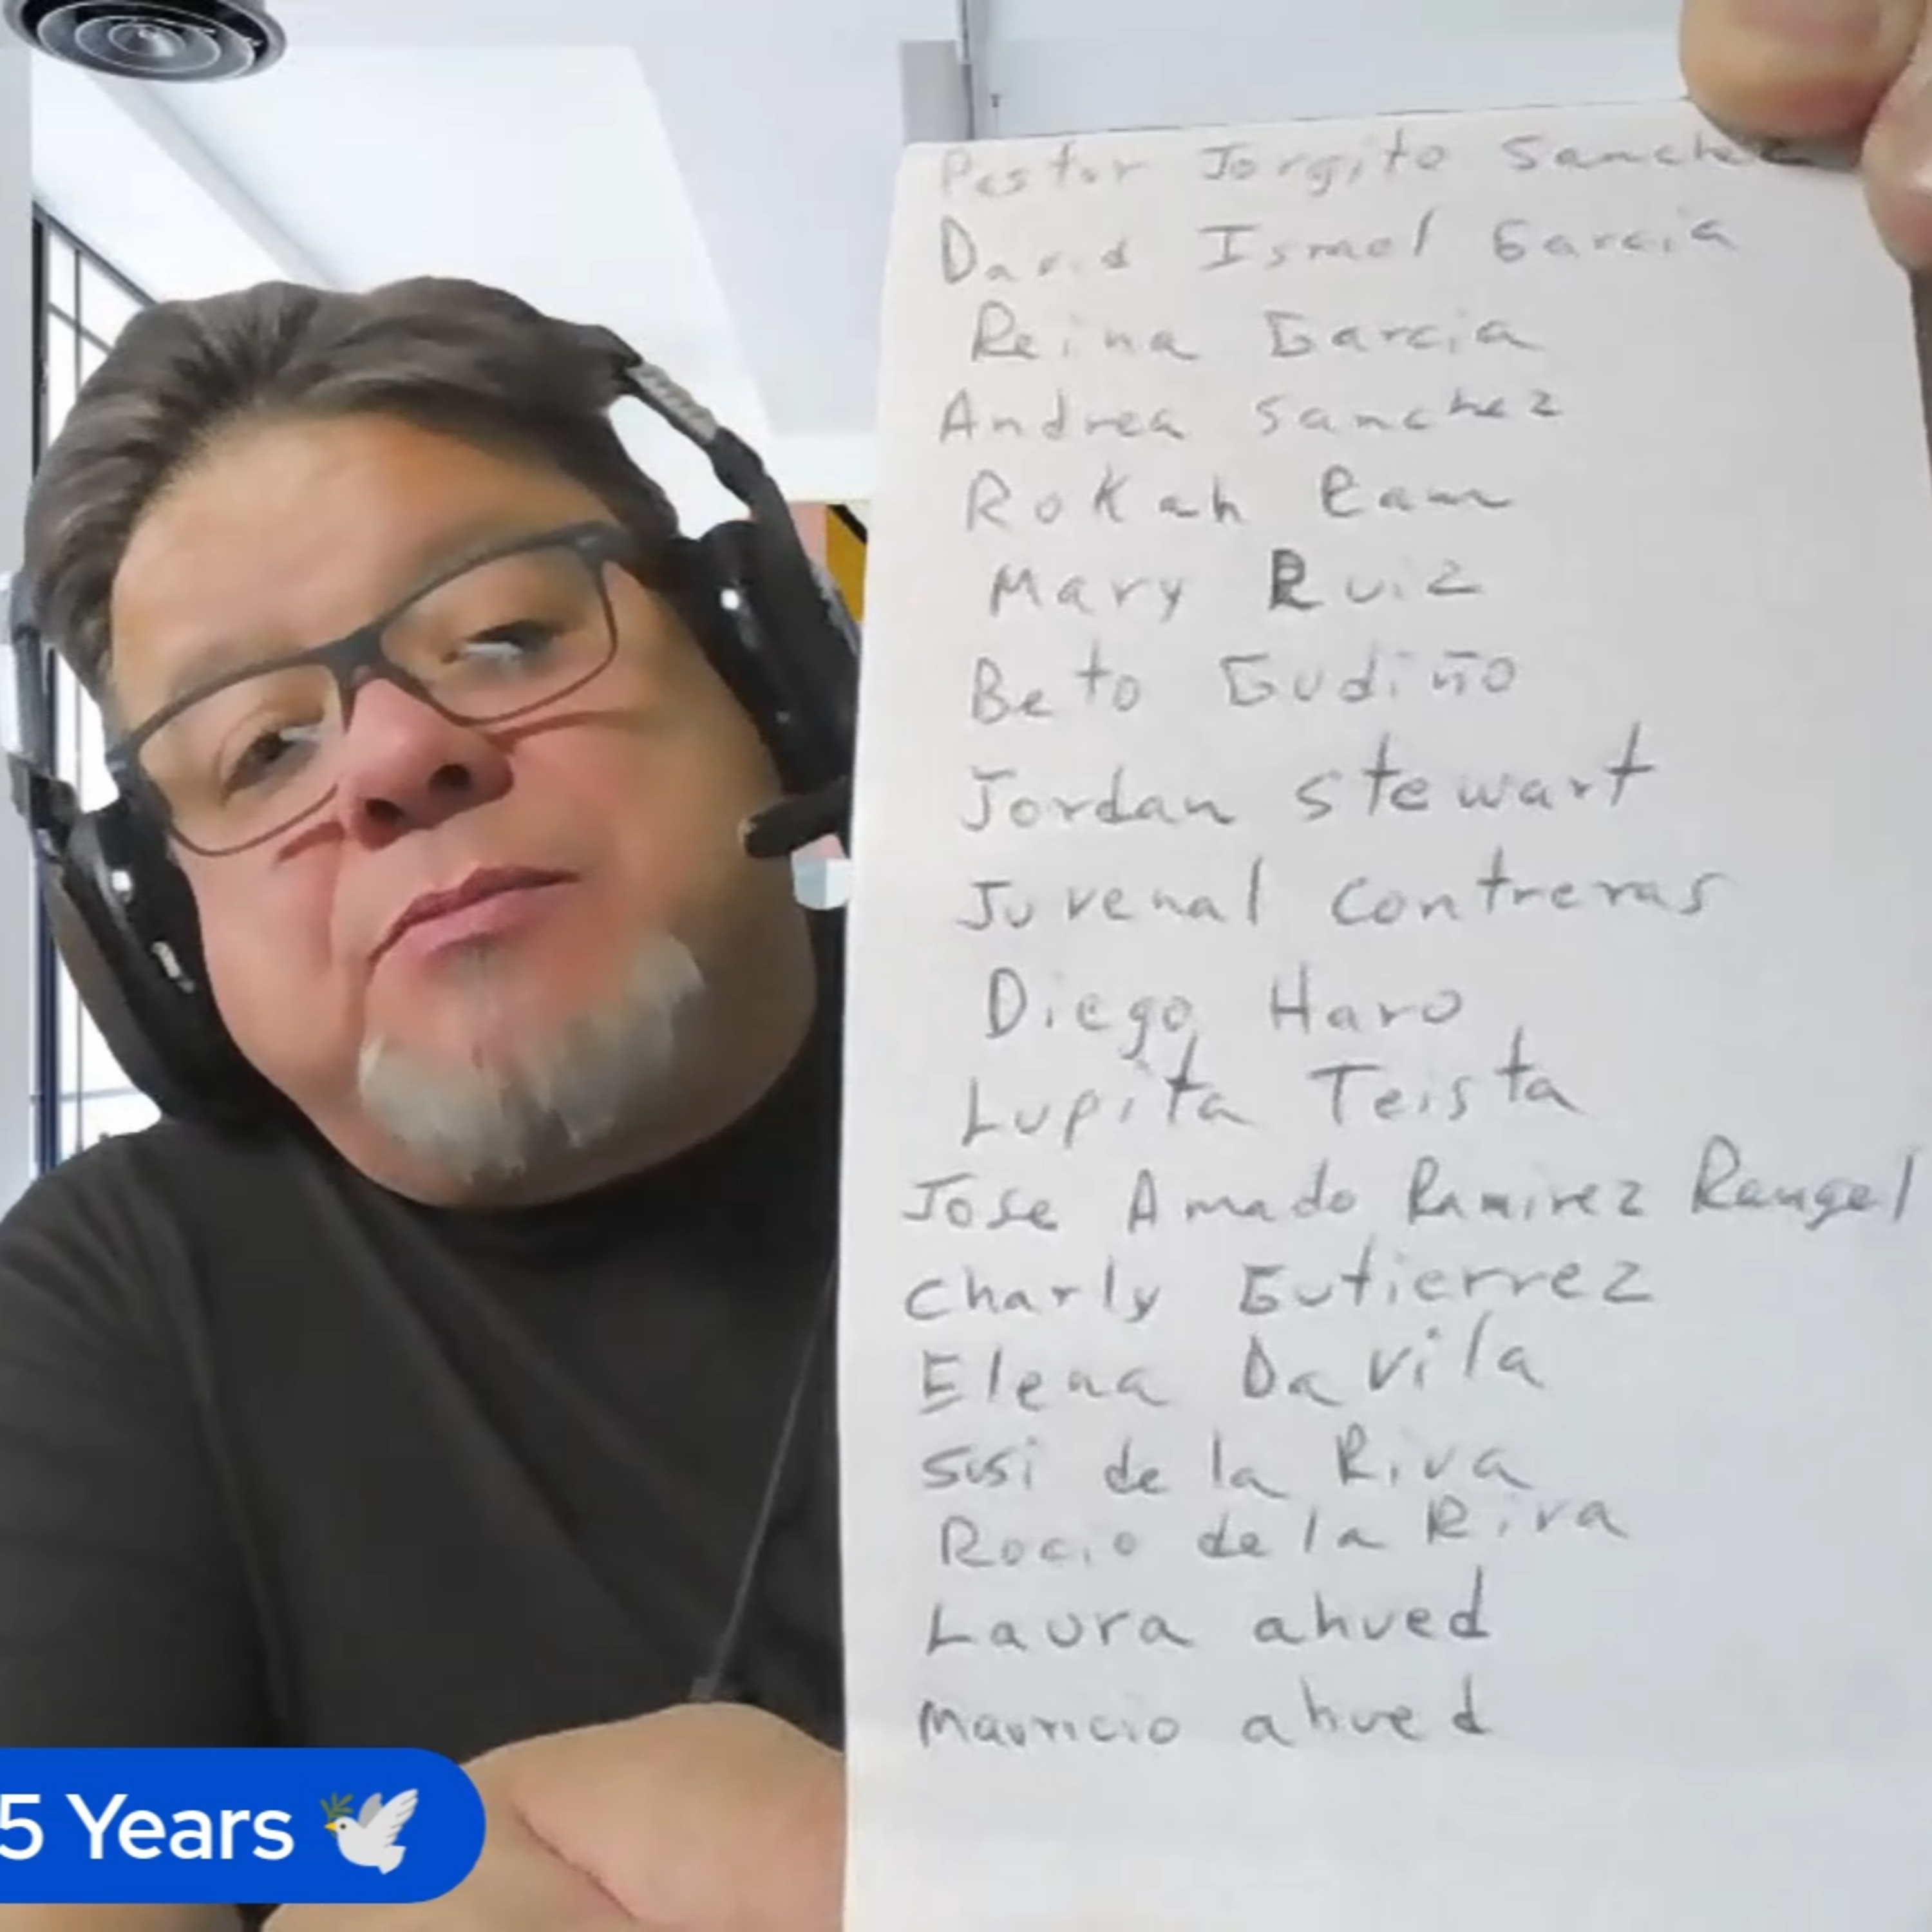 Pastor Jorgito Sanchez
David Ismel Garcia
Reina Garcia
Andrea Sanchez
Rokah Eam
Mary Ruiz
Beto Gudiño
Jordan Stewart
Juvenal Contreras
Diego Haro
Lupita Teista
Jose Amado Ramirez Rangel
Charly Gutierrez
Elena Davila
Susi de la Riva
Rocio de la Riva
Laura ahued
Mauricio ahued
5 Years